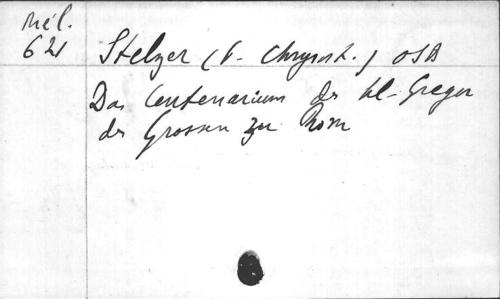 Mél.
621
Stelzer (P. Chrysost.) OSB
Das Centenarium des hl. Gregor
des Grossen zu Rom